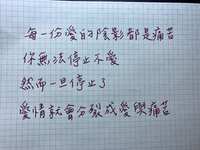 每一份愛的陰影都是痛苦
你無法停止不愛
然而一旦停止了
愛情就會分裂成愛與痛苦